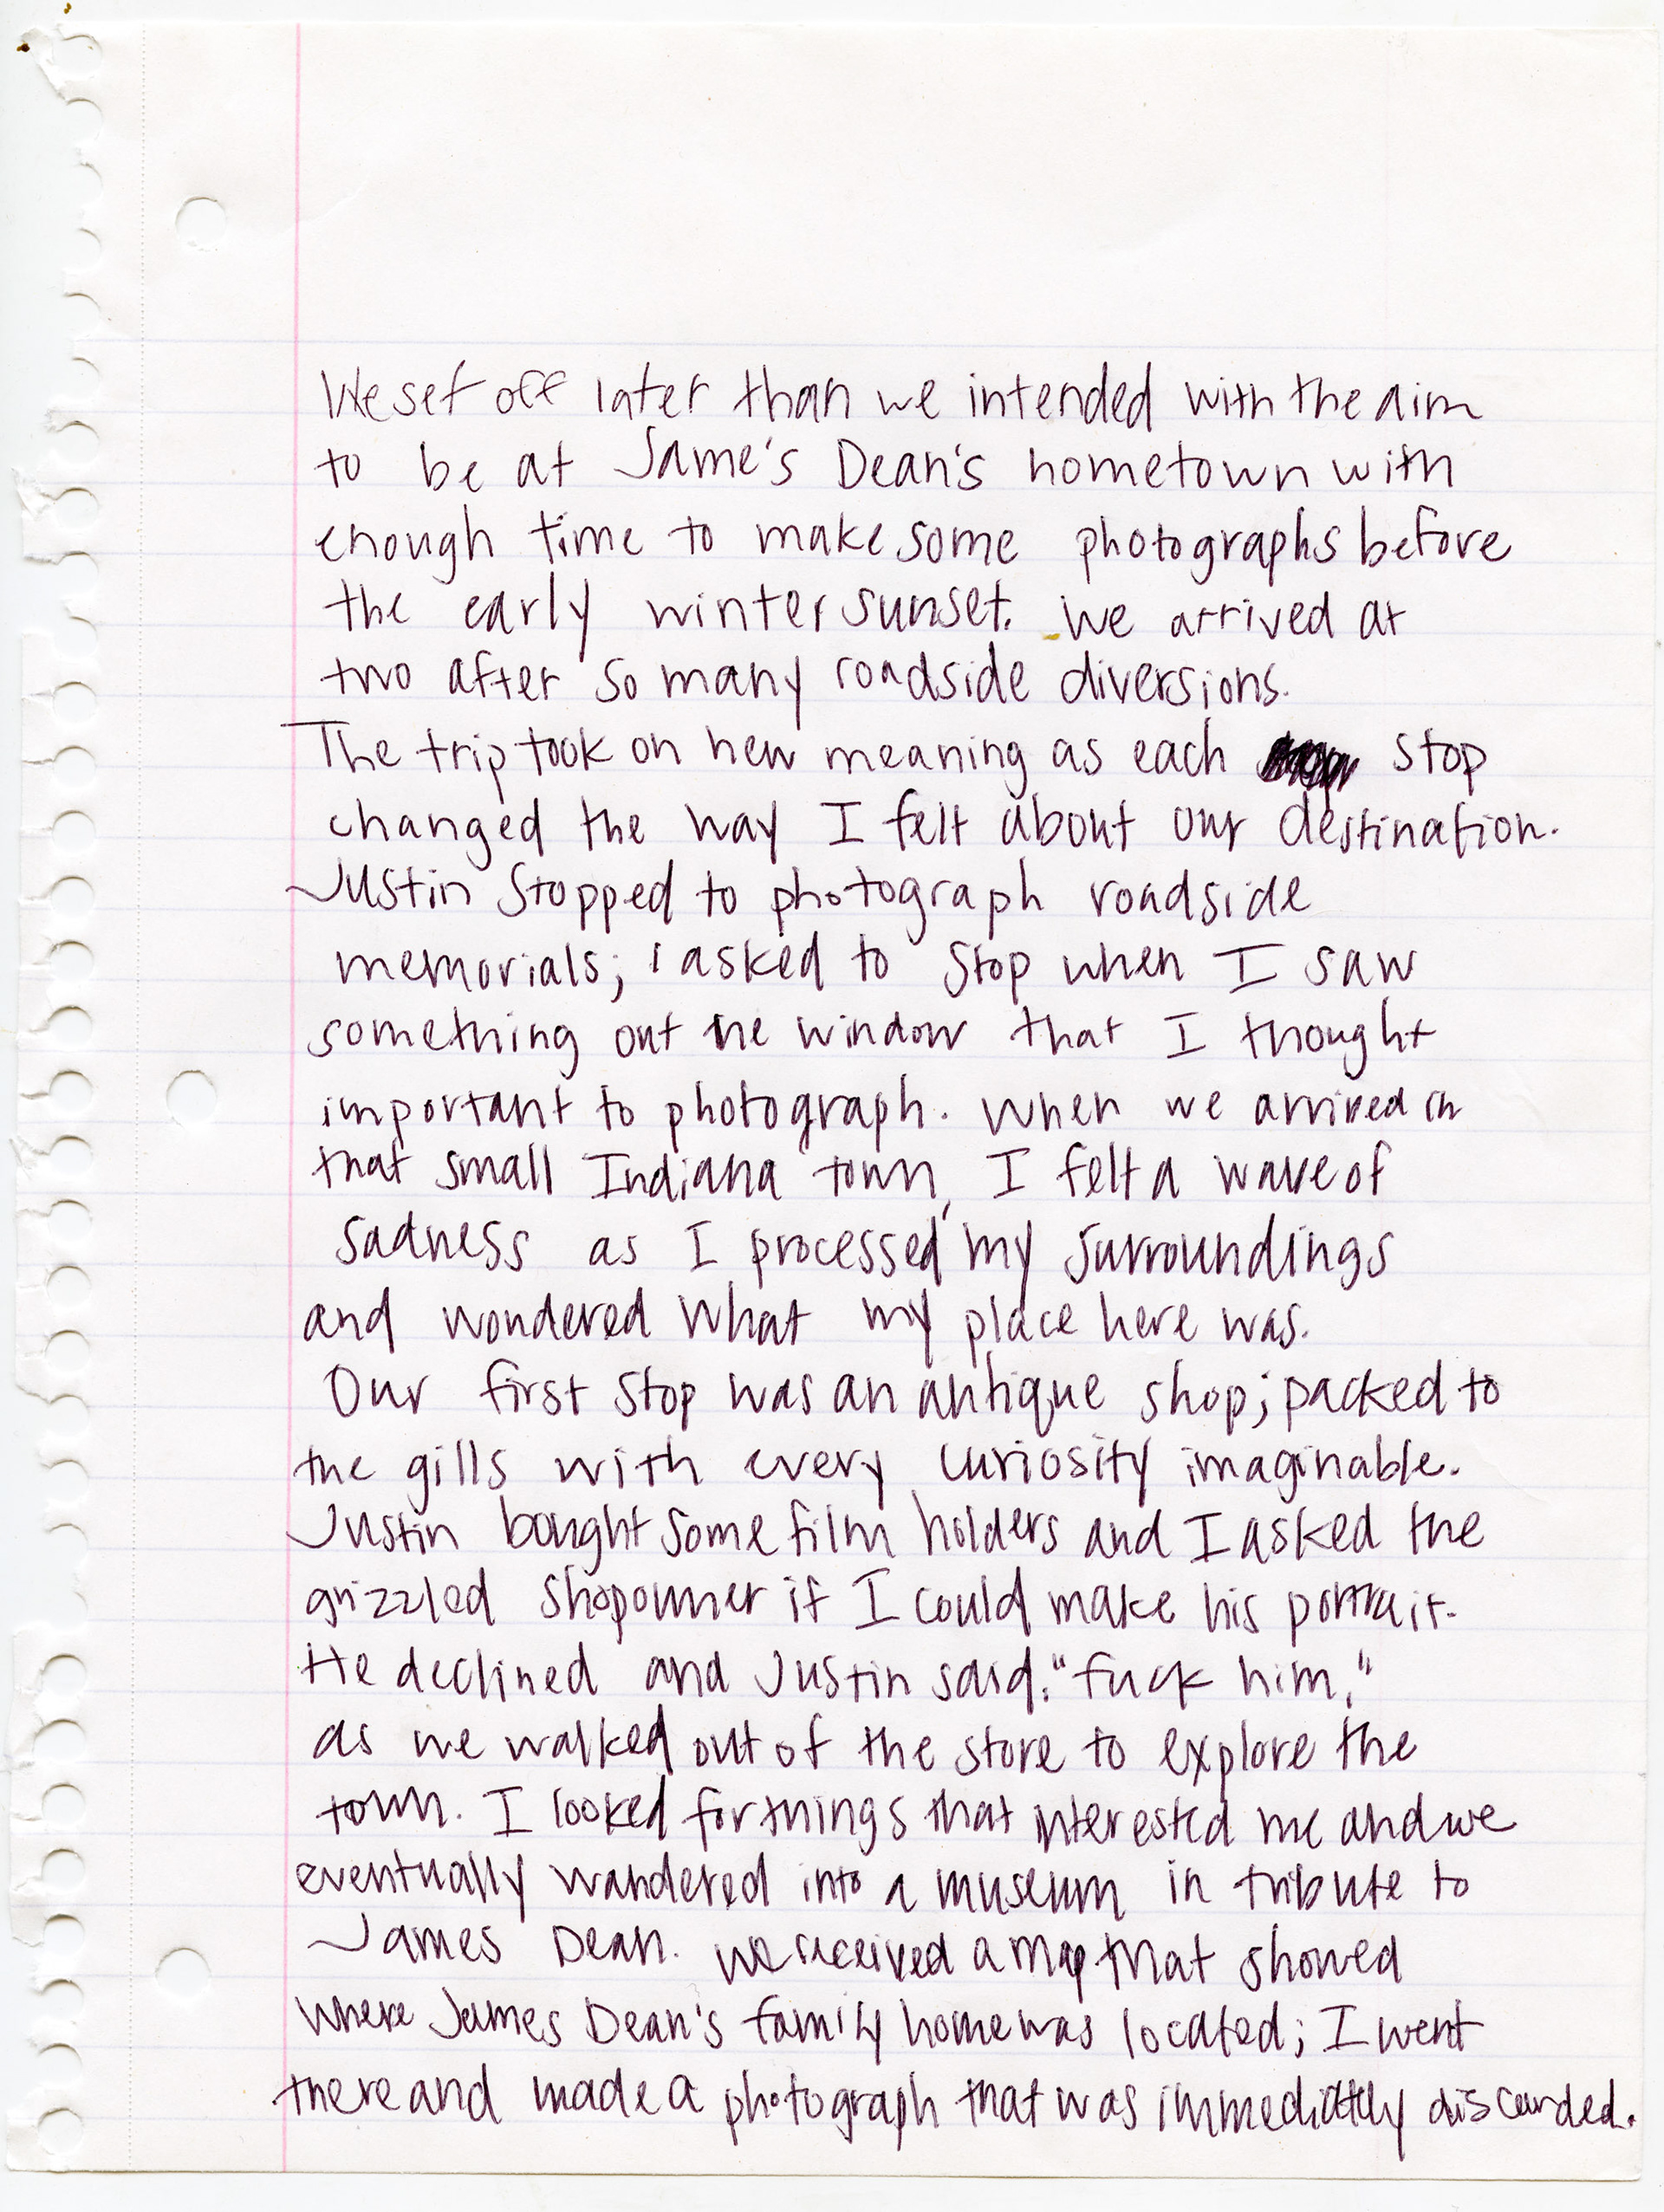 We set off later than we intended with the aim
to be at Jame's Dean's hometown with
enough time to make some photographs before
the early winter sunset. We arrived at
two after so many roadside diversions.
The trip took on new meaning as each stop
changed the way I felt about our destination.
Justin stopped to photograph roadside
memorials; I asked to stop when I saw
something out the window that I thought
important to photograph. When we arrived in
that small Indiana town, I felt a wave of
sadness as I processed my surroundings
and wondered what my place here was.
Our first stop was an antique shop; packed to
the gills with every curiosity imaginable.
Justin bought some film holders and I asked the
grizzled shopowner if I could make his portrait.
He declined and Justin said: "fuck him,"
as we walked out of the store to explore the
town. I looked for things that interested me and we
eventually wandered into a museum in tribute to
James Dean. We received a map that showed
where James Dean's family home was located; I went
there and made a photograph that was immediatly discarded.